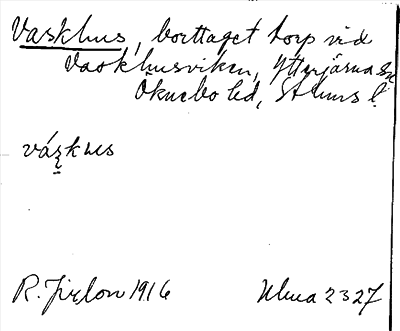 Vaskhus, borttaget torp vid
Vaskhusviken, Ytterjärna sn
Öknebo hd, Sthlms l.
vás̨kus
R. Jirlow 1916 Ulma 2327